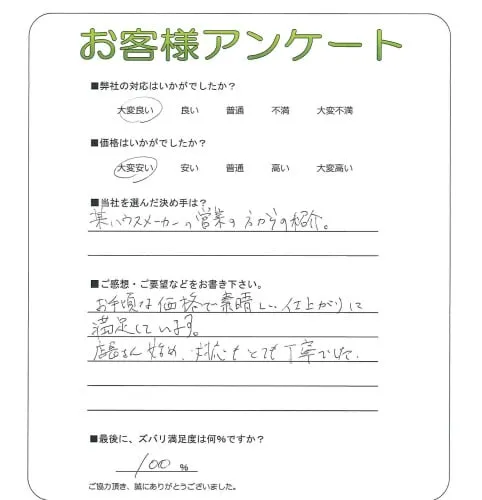 お客様アンケート
■弊社の対応はいかがでしたか？
大変良い 良い 普通 不満 大変不満
■価格はいかがでしたか？
大変安い 安い 普通 高い 大変高い
■当社を選んだ決め手は？
某ハウスメーカーの営業の方からの紹介。
■ご感想・ご要望などをお書き下さい。
お手頃な価格で素晴しい仕上がりに
満足しています。
店長さん始め、対応もとても丁寧でした。
■最後に、ズバリ満足度は何%ですか？
100 %
ご協力頂き、誠にありがとうございました。